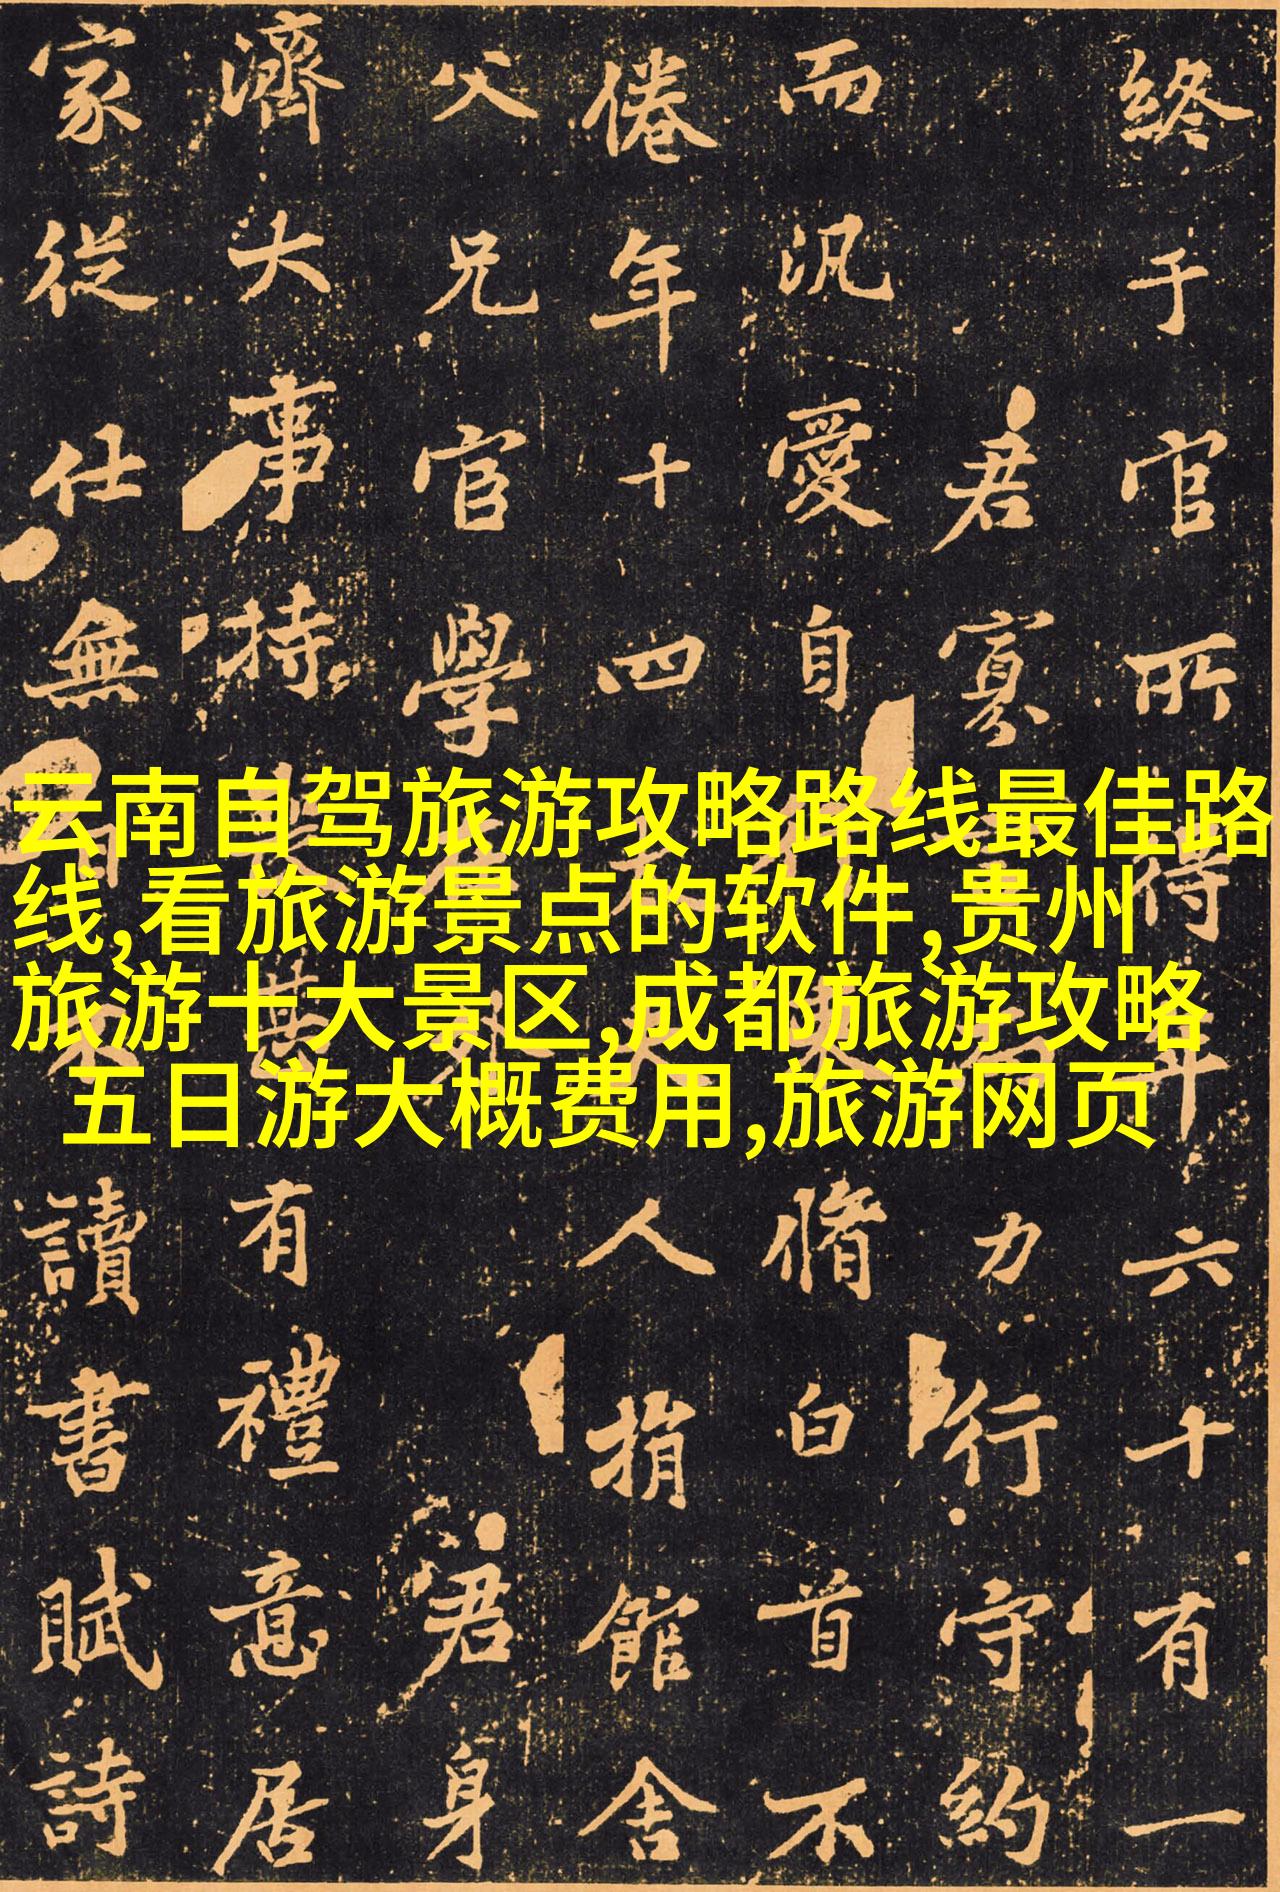 終于官所得年六十有一
君寡力行守約
而汎愛自脩白首不
倦年十四人捐館舍
父兄官學君身
濟大事持有禮意居
家從仕無讀書賦詩
云南自驾旅游攻略路线最佳路
线,看旅游景点的软件,贵州
旅游十大景区,成都旅游攻略
五日游大概费用,旅游网页